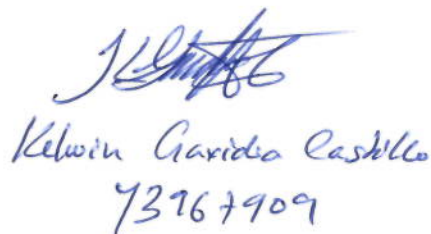 Kelwin Garidia Castillo
43967909